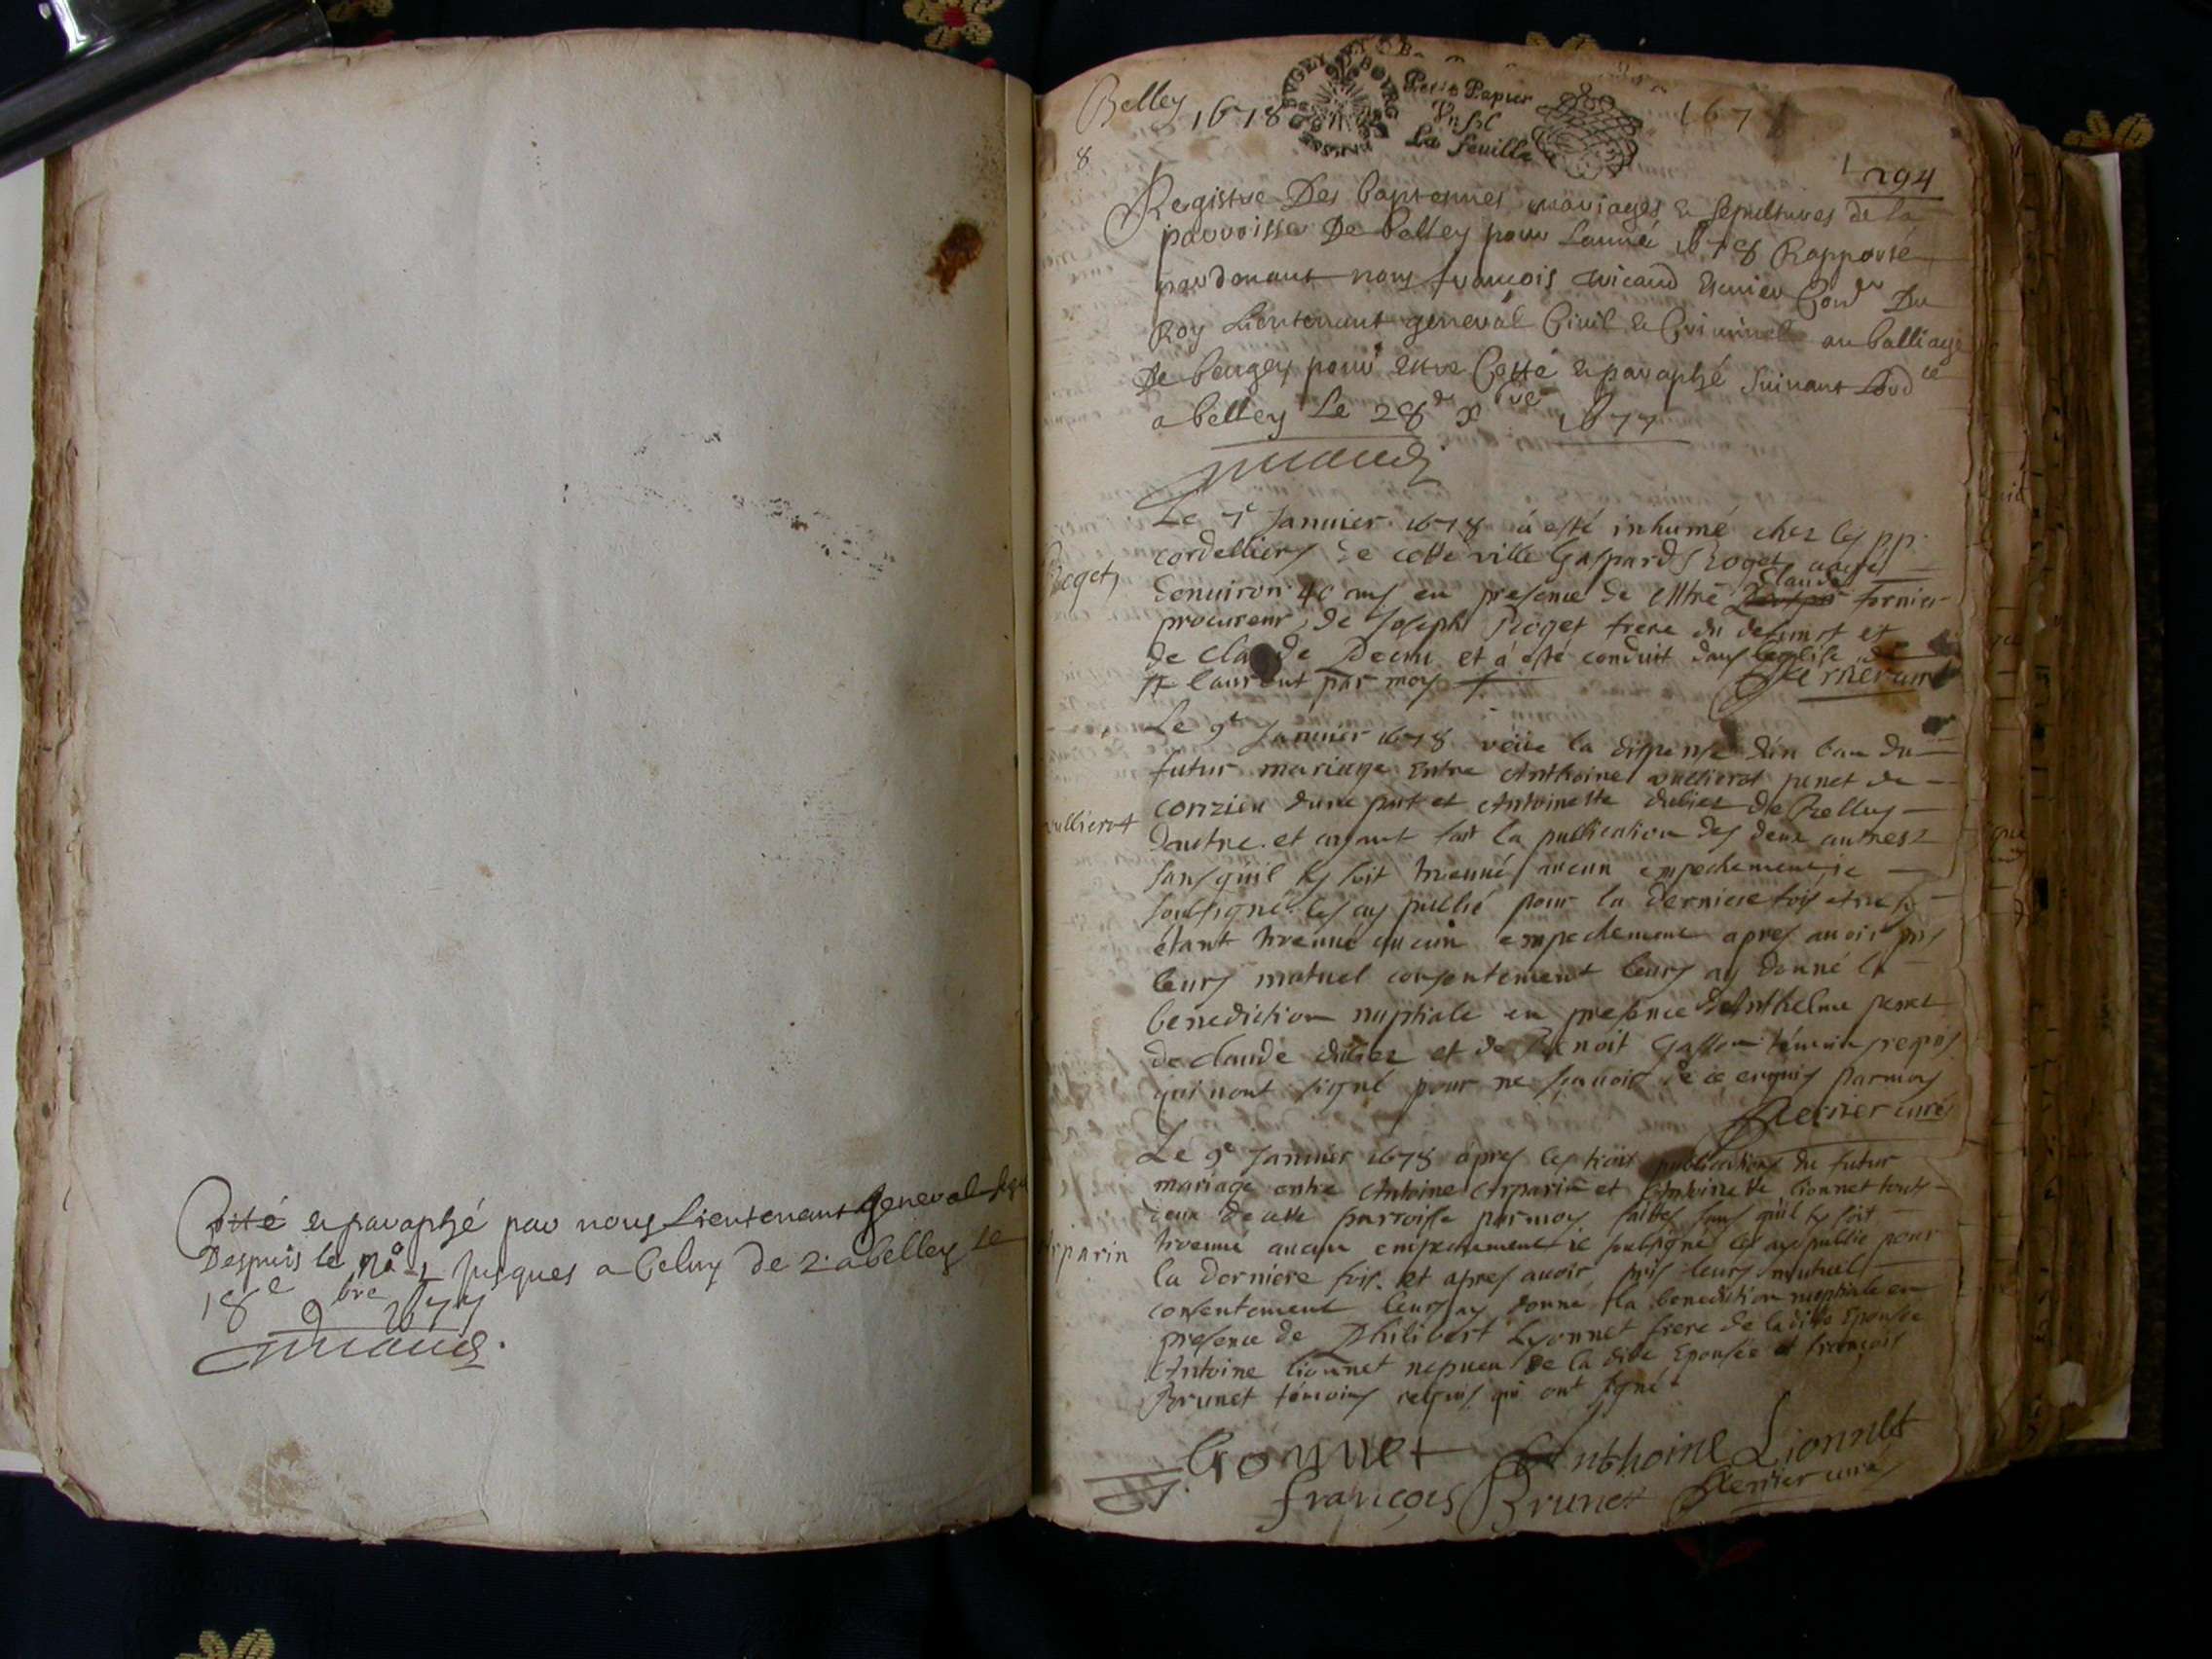 Cotté et paraphé par nous Lieutenant General
Despuis le no 1 Jusques a Celuy de 2. a belley le
18e 9bre 1677
Belley 1678
BVGEY
Petit Papier
Vn sol
La feuille
167
8
294
Registre Des baptesmes mariages & sepultures de la
parroisse De belley pour Lanné 1678 Rapporté
pardevant nous francois Escuier Con.er Du
Roy Lieutenant general Civil & Criminel au balliage
De beugey pour estre Cotté & paraphé Suivant Lord.ce
a belley Le 28e xbre 1677
Roget
Le 7e Janvier 1678 a esté inhumé chez les pp.
cordelliers de cette ville Gaspard Roget
denviron 40 ans en presence de Mtre Claude fornier
procureur, de Joseph Roget frere du defunct et
de claude et a esté conduit dans leglise de
st laurent par moy curé
Le 9e Janvier 1678 veüe la dispense dun ban du
futur mariage Entre Anthoine vullierot penet de
vullierot
conzieu dune part et Antoinette dubiez de Belley
dautre et ayant fait la publication des deux autres
sans quil sy soit treuué aucun empechement je
soussigné les ay publié pour la derniere fois et ne sy
étant treuué aucun empechement apres auoir pris
leurs mutuel consentement leurs ay donné la
benediction nuptiale en presence dAnthelme penet
de claude dubiez et de Benoit témoins requis
qui nont signé pour ne sçauoir de ce enquis par moy
curé
Le 9e Janvier 1678 apres les trois publications du futur
mariage entre Antoine Arparin et Antoinette lionnet touts
deux de cette parroisse par moy faittes sans quil sy soit
Arparin
treuué aucun empechement je soussigné les ay publié pour
la derniere fois et apres auoir pris leurs mutuel
consentement leurs ay donné la benediction nuptiale en
presence de Philibert Lyonnet frere de laditte Epousée
Antoine lionnet nepueu de la dite Epousée et françois
Brunet témoins requis qui ont signé
Lionnet Anthoine Lionnet
françois Brunet curé